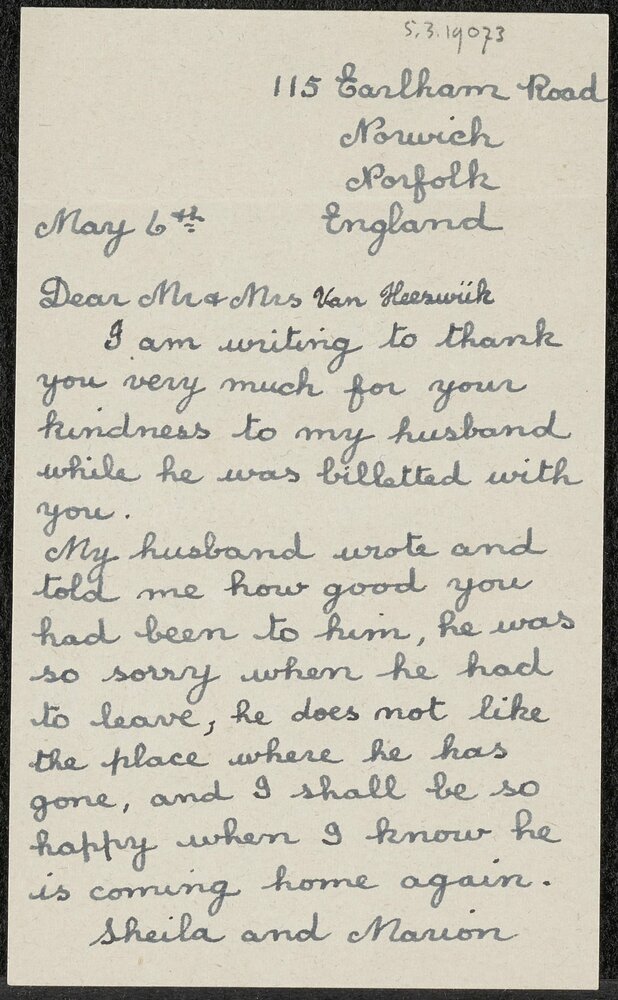 5.3.19073
115 Earlham Road
Norwich
Norfolk
May 6th England
Dear Mr & Mrs Van Heeswiik
I am writing to thank
you very much for your
kindness to my husband
while he was billetted with
you.
My husband wrote and
told me how good you
had been to him, he was
so sorry when he had
to leave, he does not like
the place where he has
gone, and I shall be so
happy when I know he
is coming home again.
Sheila and Marion